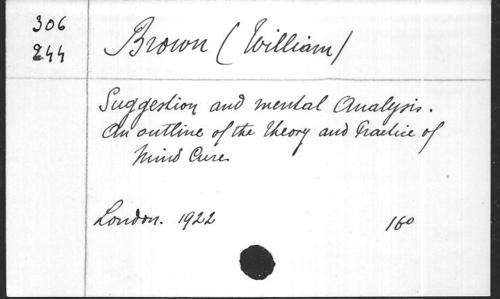 306
244
Brown (William)
Suggestion and mental Analysis.
An outline of the theory and Practice of
Mind Cure.
London. 1922
16°